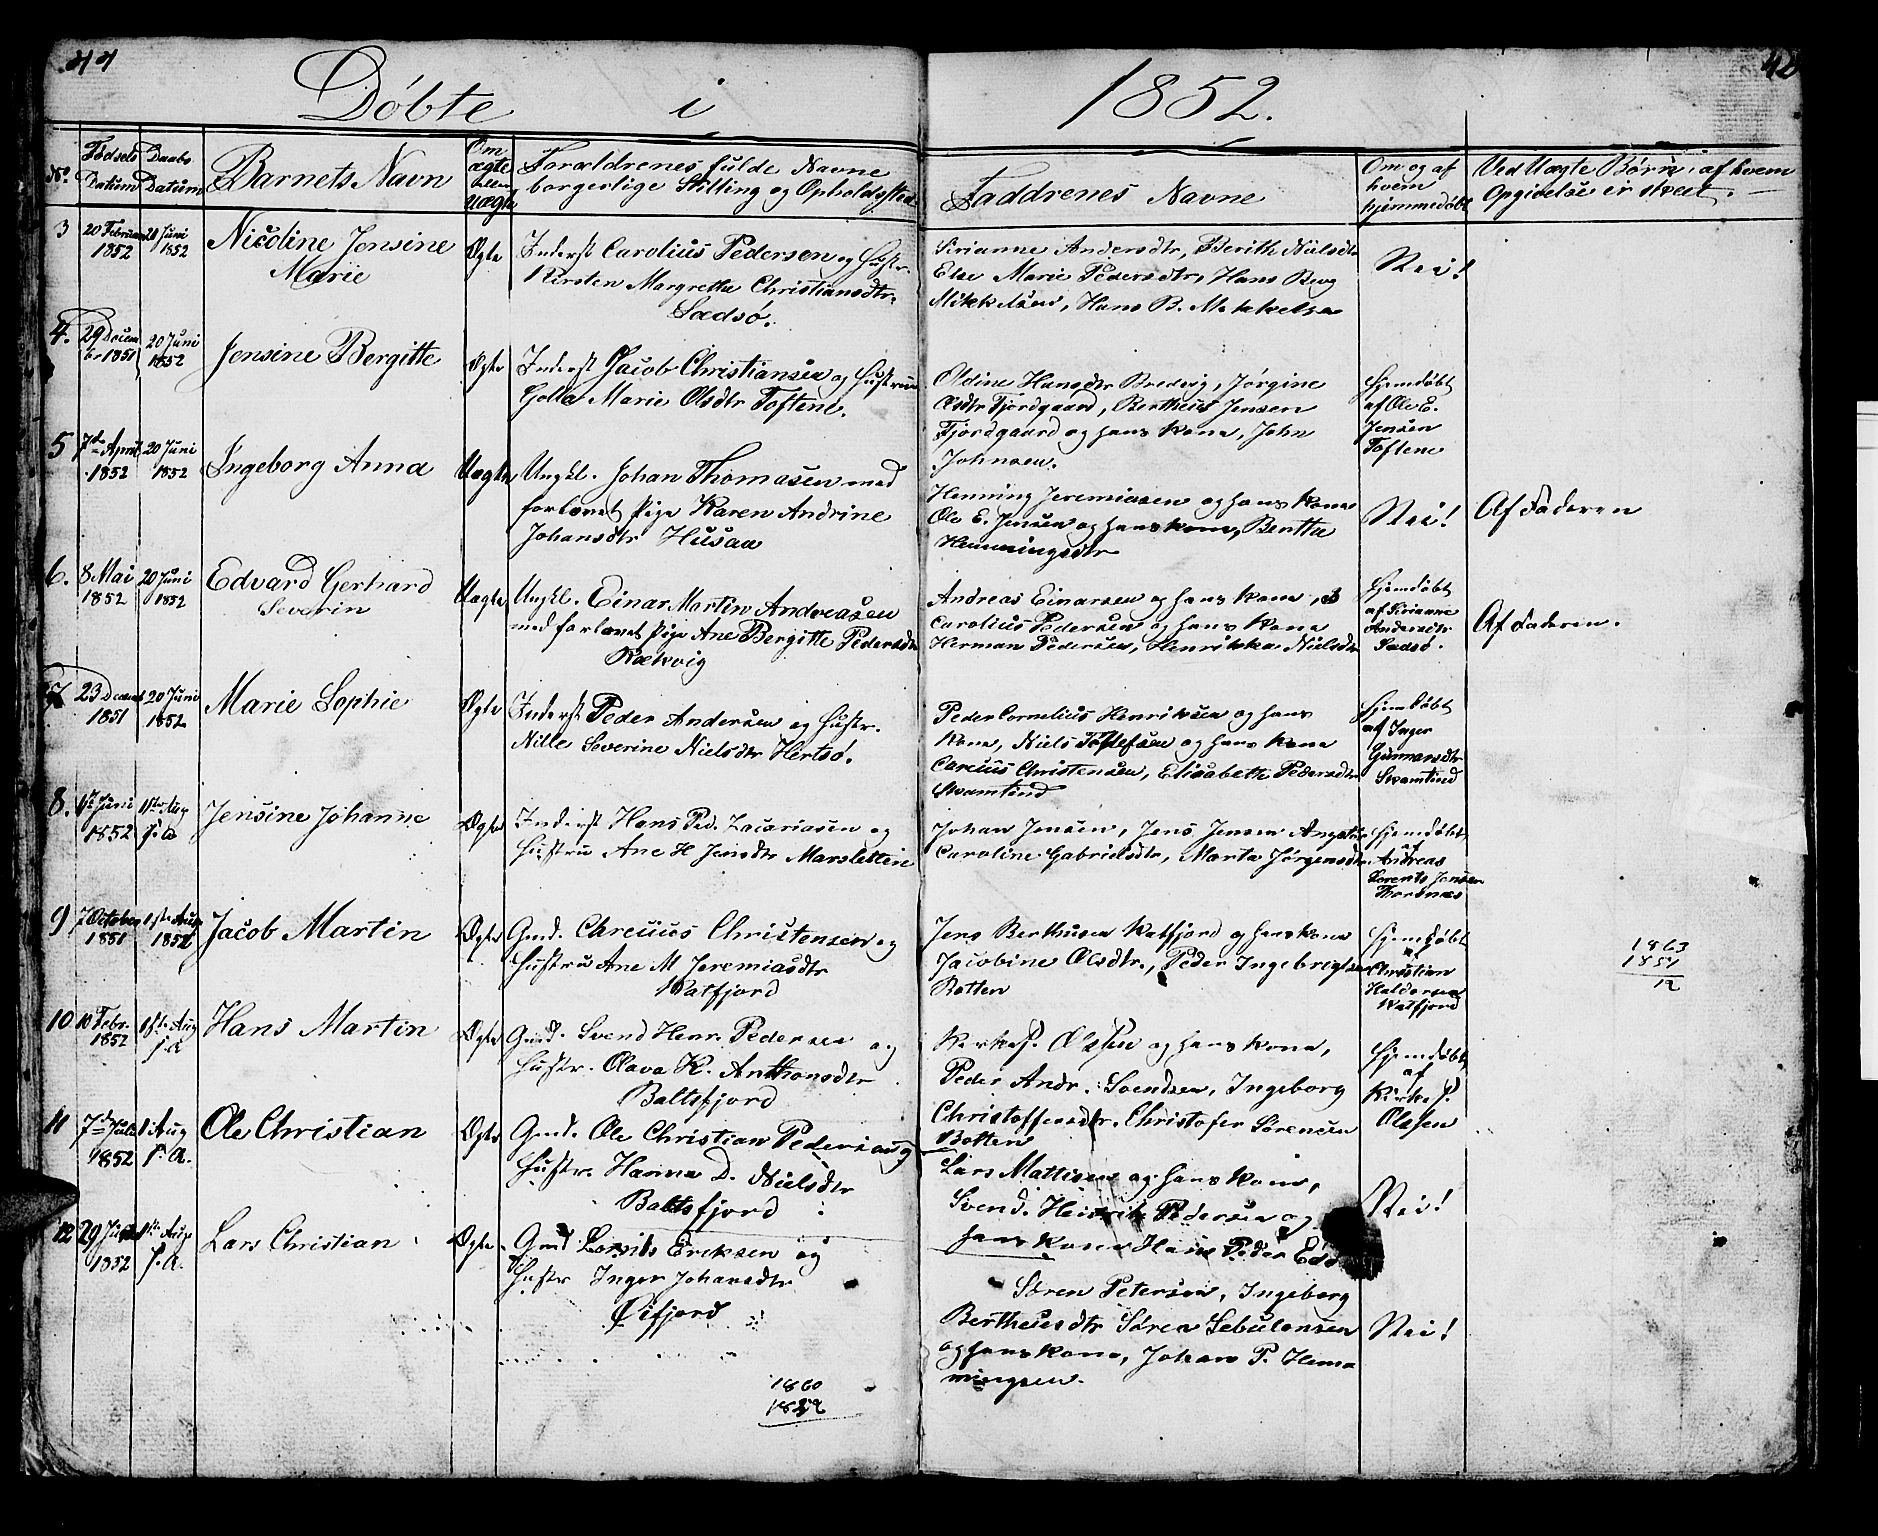 Døbte i 1852.
42
No.
Fødsels Datum
Daabs Datum
Barnets Navn
Om ægte eller uægte
Forældrenes fulde Navne
borgerlige Stilling og Opholdssted
Faddrenes Navne
Om og af
hvem
hjemmedøbt
Ved Uægte Børn, af hvem
Opgivelse er skeet.
3
20 Februar 1852
20 Juni 1852
Nicoline Jensine
Marie
Ægte
Inderst Carolius Pedersen og Hustr.
Kirsten Margretha Christiansdtr.
Sædsø.
Sirianne Andersdtr, Berith Nielsdtr
Else Marie Pedersdtr, Hans Berg
Mikkelsen, Hans B. Mikkelsen
Nei!
4.
29 Decem
br 1851
20 Juni
1852
Jensine Bergitte
Ægte
Inderst Jacob Christiansen og Hustrue
Golla Marie Olsdtr Toftene.
Oldine Hansdtr Bredvig, Jørgine
Olsdtr Fjordgaard, Bertheus Jensen
Fjordgaard og hans Kone, John
Johnsen.
Hjemdøbt
af Ole E.
Jensen
Toftene
5
7de April
1852
20 Juni
1852
Ingeborg Anna
Uægte
Ungkl. Johan Thomasen med
forlovet Pige Karen Andrine
Johansdtr Husaa
Henning Jeremiasen og hans Kone
Ole E. Jensen og hans Kone, Bertha
Henningsdtr
Nei!
Af Faderen
6.
8 Mai
1852
20 Juni
1852
Edvard Gerhard
Severin
Uægte
Ungkl. Einar Martin Andreasen
med forlovet Pige Ane Bergitte Pedersdtr
Rækvig
Andreas Einarsen og hans Kone,
Carolius Pedersen og hans Kone
Herman Pedersen, Henrikka Nielsdtr
Hjemdøbt
af Sirianne
Andersdtr
Sædsø.
Af Faderen.
7.
23 Decemb
1851
20 Juni
1852
Marie Sophie
Ægte
Inderst Peder Andersen og Hustr.
Nille Severine Nielsdtr Hertsø.
Peder Cornelius Henriksen og hans
Kone, Niels Toflefsen og hans Kone
Carcius Christensen, Elisabeth Pedersdtr
Skamtind
Hjemdøbt
af Inger
Gunnarsdtr
Skamtind
8.
Juni
1852
1ste Aug
s.a
Jensine Johanne
Ægte
Inderst Hans Ped. Zacariasen og
Hustru Ane H Jensdtr Marsletten
Johan Jensen, Jens Jensen
Caroline Gabrielsdtr, Marta Jørgensdtr
Hjemdøbt
af
Andreas
Lorents Jensen
9
7 October
1851
1ste Aug
1852
Jacob Martin
Ægte
Gmd. Christensen og
Hustru Ane M Jeremiasdtr
Katfjord
Jens Berthusen Katfjord og hans Kone
Jacobine Olsdtr., Peder Ingebrigtsen
Botten
Hjemdøbt
af
Christian
Haldorsen
Katfjord
1863
1851
12
10
10 Febr.
1852
1ste Aug
s.A
Hans Martin
Ægte
Gmd. Svend Henr. Pedersen og
Hustr. Olava K. Anthonsdtr
Baltsfjord
Kirkes. Olsen og hans Kone,
Peder Andr. Svendsen, Ingeborg
Christoffersdtr. Christofer Sørensen
Botten
Hjemdøbt
af
Kirkes.
Olsen
11
7de Juli
1852
1 Aug
s.A.
Ole Christian
Ægte
Gmd. Ole Christian Pedersen og
Hustr. Hanna D. Nielsdtr
Baltsfjord
Lars Mathisen og hans Kone,
Svend Heinrik Pedersen og
hans Kone Hans Peder
Nei!
12
29
1852
1ste Aug
s.A.
Lars Christian
Ægte
Gmd. Eriksen og
Hustr Inger Johansdtr
Øifjord
Søren Petersen, Ingeborg
Bertheusdtr Søren Sebulonsen
og hans Kone, Johan P. Hemm
ningsen.
Nei!
1860